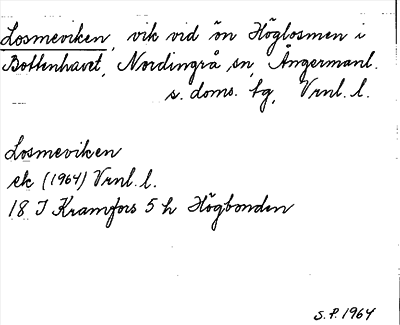 Losmeviken, vik vid ön Höglosmen i
Bottenhavet, Nordingrå sn, Ångermanl.
s. doms. tg, Vrnl. l.
Losmeviken
ek (1964) Vrnl. l.
18 I Kramfors 5 h Högbonden
S.P. 1964